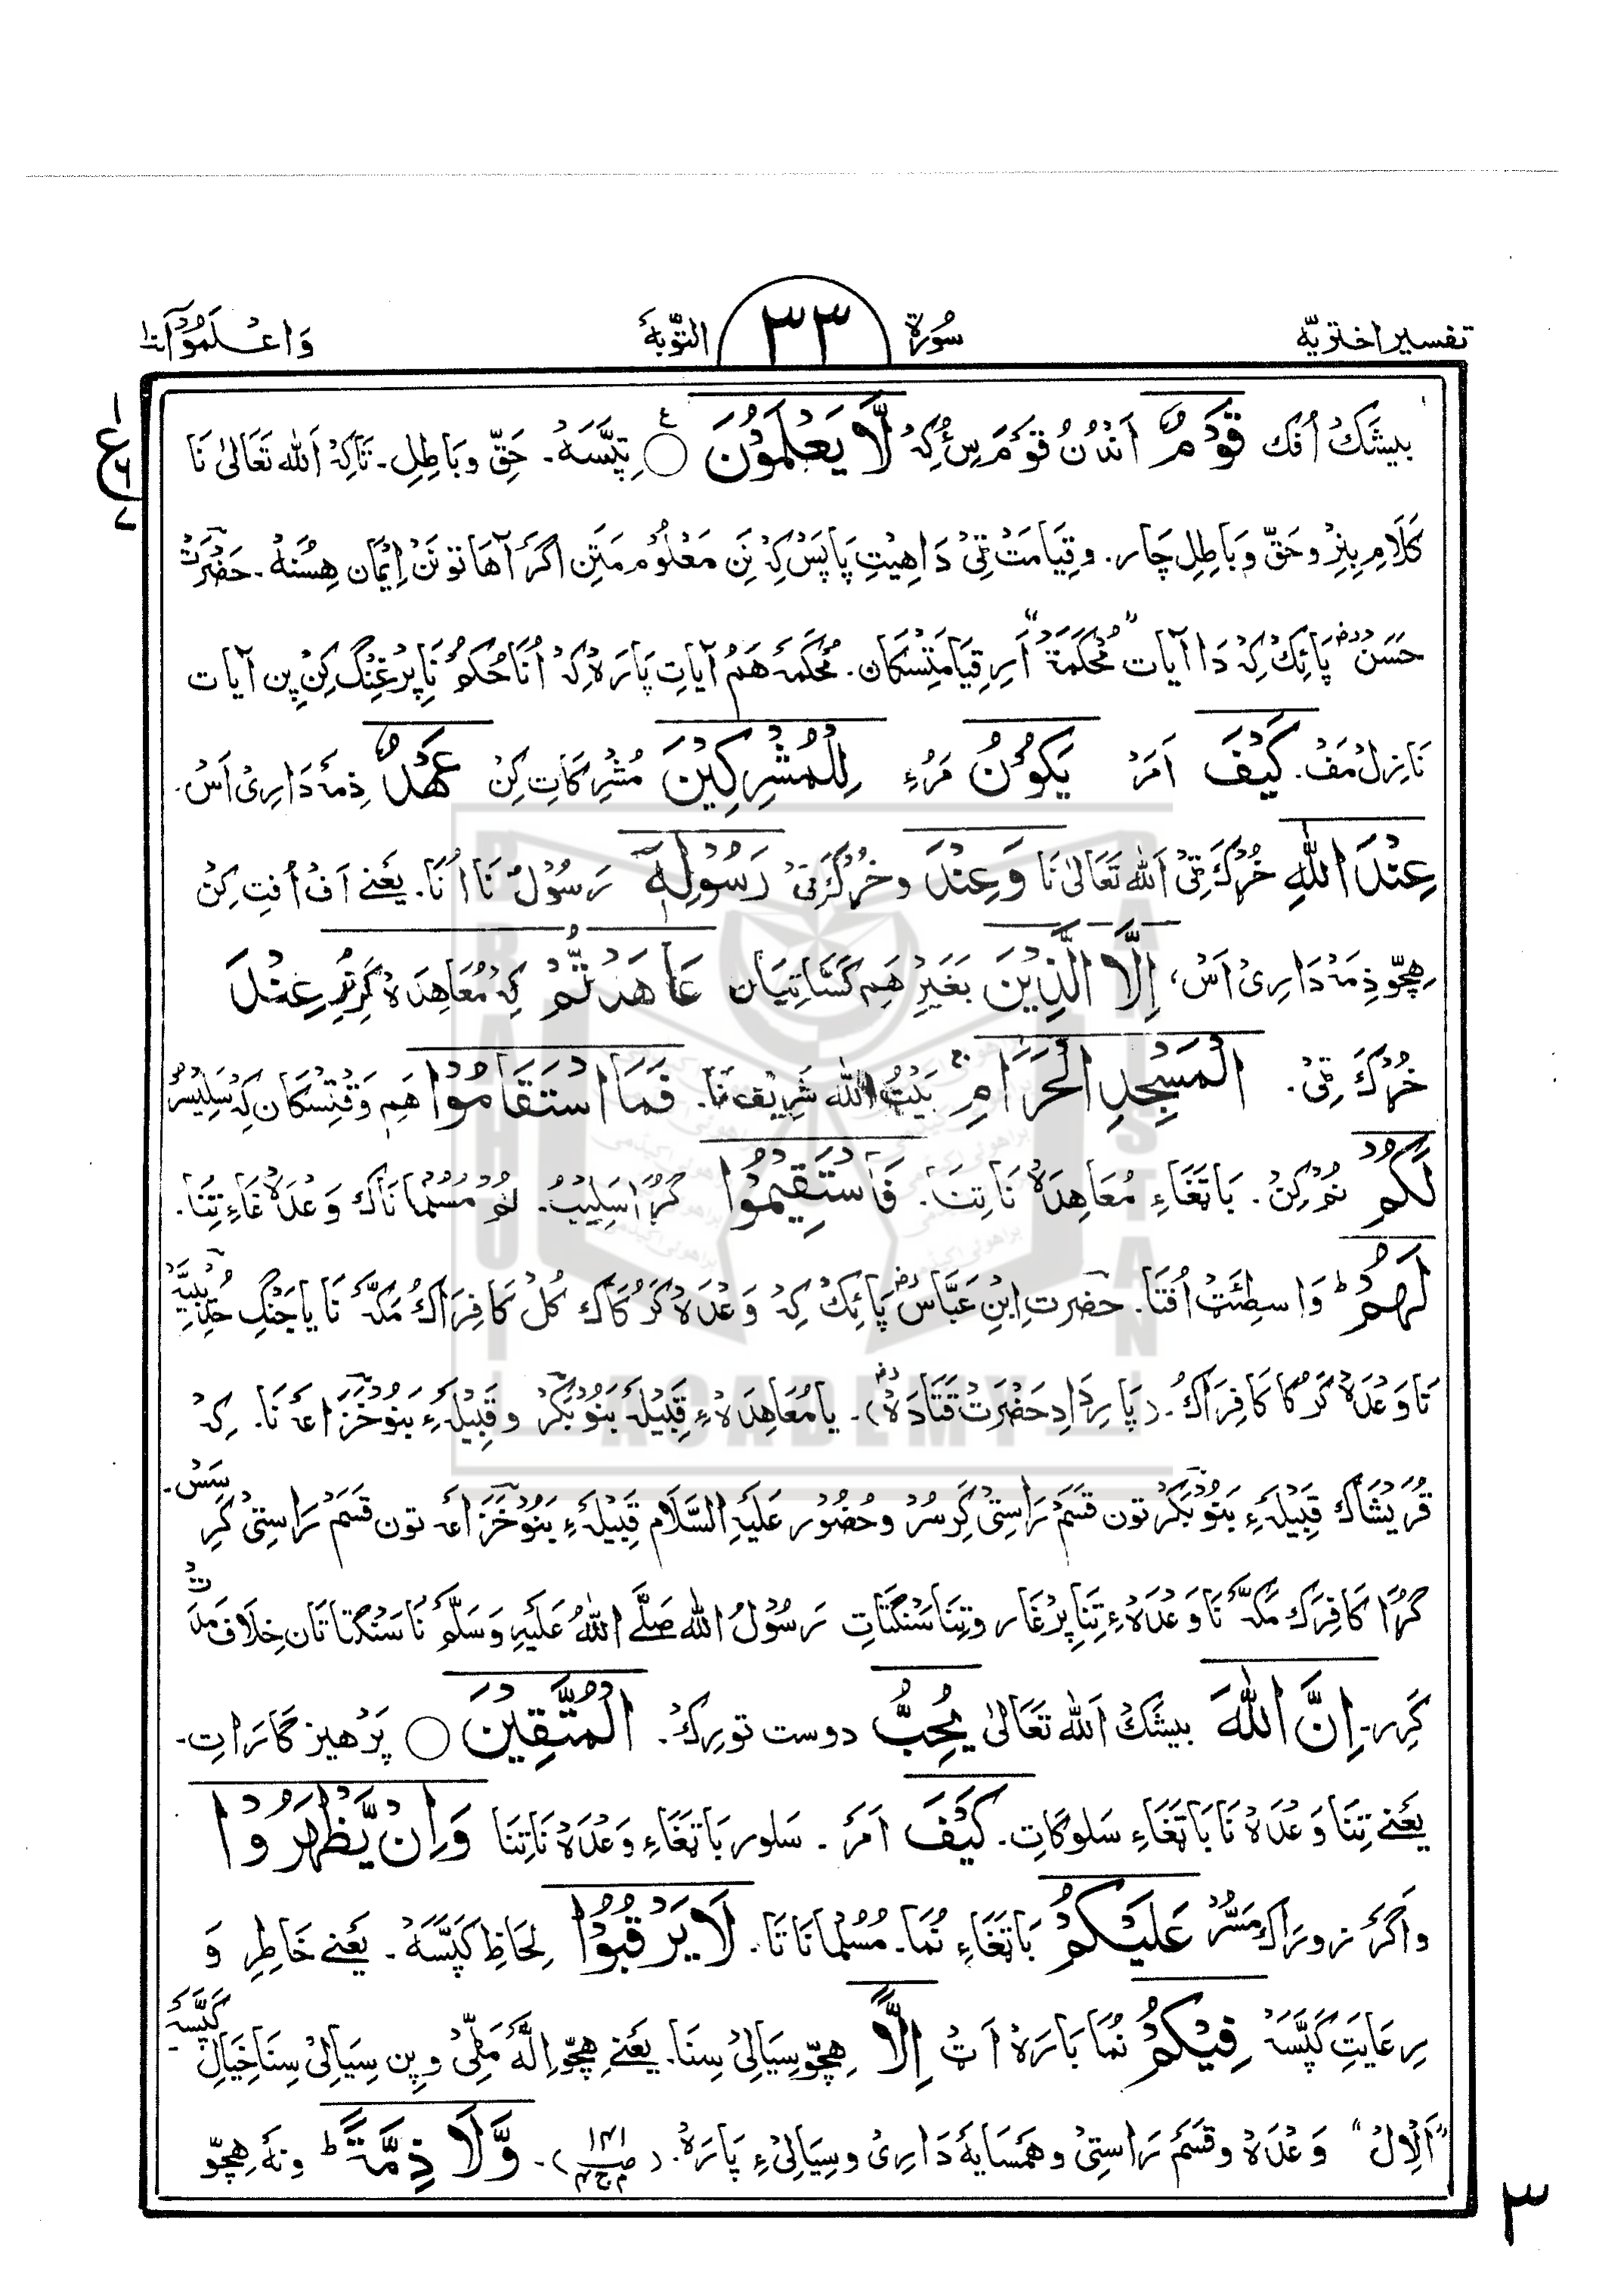 تفسیر اختریّه سُورة ٣٣ التوّبهٔ وَاعْلَمُوْآ
بیشَکْ اُفک قَوْمٌ اَنْدُنْ قَوْمَ سِ ئُکِہْ لَّا يَعْلَمُوْنَ ۝ تِپَّسَهْ۔ حَقّ وبَاطِلِ۔ تَاکِہْ اَللّٰه تَعَالیٰ نَا
كَلَامِ بِنِرْ وحَقّ وَبَاطِلِ چَار۔ وقِیَامَتْ ٹِیْ دَاهِیْتِ پَاپَسْ کِہْ نَنِ مَعْلُوُم مَتَنِ اگَرَ آهَاتوتَنْ اِیْمَان هِسُنَهْ۔ حَضْرَتْ
حَسَنْ رض پَائِکْ کِہْ دَا آیات "مُحْکَمَةْ" اَرِ قِیَامَتِسْکَان۔ مُحْکَمَهْ هَمُ آیَاتِ پَارَهْ کِہْ اُنَا حُکَمْ نَا پِرْغِنْگ کِنْ پِن آیَات
نَازِلْ مَفْ۔ كَيْفَ اَمَرْ يَكُوْنُ مَرُءِ لِلْمُشْرِكِيْنَ مُشْرِکَاتِ کِنْ عَهْدٌ ذِمَهٔ دَارِیْ اَسْ۔
عِنْدَ اللّٰهِ خُڑُکَ ٹِیْ اَللّٰه تَعَالیٰ نَا وَعِنْدَ وخُڑُکْ ٹِیْ رَسُوْلِهٖٓ رَسُوْلْ نَا اُنَا۔ یَعْنےٰ اَفْ اُفتِ کِنْ
هِچّو ذِمَهْ دَارِیْ اَسْ، اِلَّا الَّذِيْنَ بَغَیْرِ هَمِ کَسَّاتِیَان عَاهَدْتُّمْ کِہْ مُعَاهِدَهْ کَرِیْرِ عِنْدَ
خُڑُکَ ٹِیْ۔ الْمَسْجِدِ الْحَرَامِ ج بَیْتُ اللّٰه شَرِیْف نَا۔ فَمَا اسْتَقَامُوْا هَمِ وَقْتِسْکَان کِہْ سَلِیْسُرْ
لَكُمْ نُمْ کِنْ۔ بَاتَغَاءِ مُعَاهِدَهْ نَا تِنَا۔ فَاسْتَقِيْمُوْا گُڑَا سَلِیْبْ۔ نُمْ مُسْلمانَاک وَعْدَهْ غَاءِ تِنَا۔
لَهُمْ ط وَاسِطِئَتْ اُفتَا۔ حضرت اِبْنِ عَبَّاسْ رض پَائِکْ کِہْ وَعْدَهْ کَرُکَاک کُلْ کَافِرَاکْ مَکّهْ نَا یاجَنگِ حُدَیْبِیَّہْ
نَا وَعْدَهْ کَرُکَا کَافِرَاکْ۔ (پَارِدَادِ حَضْرَتْ قَتَادَهْ رض)۔ یامُعَاهِدَهْ ءِ قَبِیْلَهٔ بَنُوْبَکَرْ وقَبِیْلَہْءِ بَنوخُزَاعَه نَا۔ کِہْ
قُرَیْشَاک قَبِیْلَہْءِ بَنُوْبَکَرْ تون قَسَمْ رَاسِتِیْ کَرِسُرْ وحُضُوْر عَلَیْهِ السَّلَام قَبِیْلَہْءِ بَنُوْخُزَاعَه تون قَسَمْ رَاسِتِیْ کَرِ سَسْ۔
گُڑَا کَافِرَاک مَکَّهْ نَا وَعْدَهْ ءِ تِنَا پِرْغَار وتِنَا سَنْگَتَاتِ رَسُوْلُ اللّٰه صَلَّے اللّٰهُ عَلَیْهِ وَسَلَّمْ نَا سَنْگَتَاتَان خِلَافْ مَدَتْ
کَرِر۔ اِنَّ اللّٰهَ بیشَکْ اَللّٰه تَعَالیٰ يُحِبُّ دوست تورِکْ۔ الْمُتَّقِيْنَ ۝ پَرْهِیز گارَاتِ۔
یَعْنےٰ تِنَا وَعْدَهْ نَا بَاتَغَاءِ سَلوکَاتِ۔ كَيْفَ اَمَرَ۔ سَلور بَاتَغَاءِ وَعْدَهْ نَا تِنَا وَاِنْ يَّظْهَرُوْا
واَگَرَ زوراک مَسُرْ عَلَيْكُمْ بَاتَغَاءِ نُمَا۔ مُسُلمانَاتَا۔ لَا يَرْقُبُوْا لِحَاظِ کَپَّسَهْ۔ یَعْنےٰ خَاطِرِ وَ
رِعَایَتِ کَپَّسَهْ فِيْكُمْ نُمَا بَارَهْ اَٹْ اِلًّا هِچّو سِیَالِیْ سِنَا۔ یَعْنےٰ هِچّو اِلّهْ مَلِّیْ وپِن سِیَالِیْ سِنَاخِیَالِ کَپَّسَهْ۔
"اَلْاِلْ" وَعْدَهْ وقَسَمْ رَاسِتِیْ وهَمْسَایَهٔ دَارِیْ وسِیَالِیْ ءِ پَارَهْ۔ (ص ١٤١ م ج ٤)۔ وَّلَا ذِمَّةً ط ونَهْ هِچّو
٣